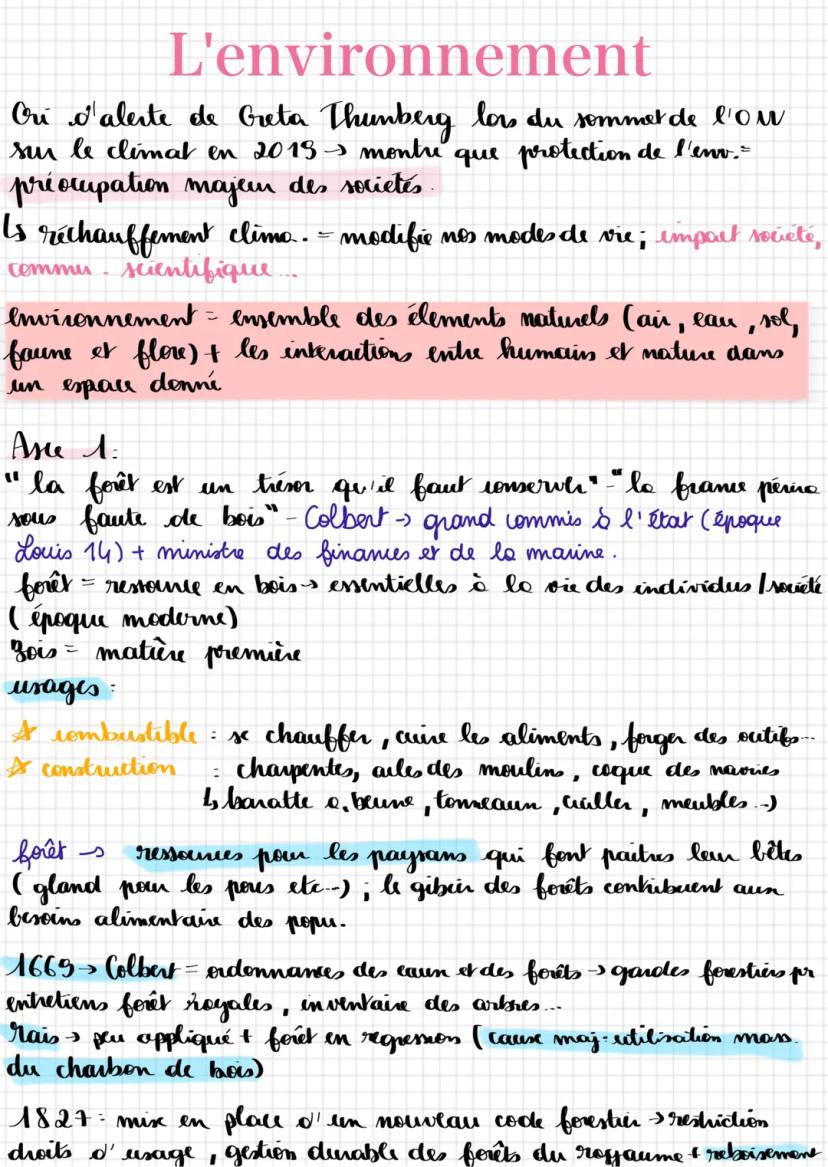 L'environnement
Cri d'alerte de Greta Thunberg lors du sommet de l'ONU
sur le climat en 2019 → montre que protection de l'env. =
préocupation majeur des societés.
↳ réchauffement clima. = modifie nos modes de vie ; impact société,
commu. scientifique...
environnement = ensemble des élements naturels (air, eau, sol,
faune et flore) + les interactions entre humain et nature dans
un espace donné
Axe 1 :
"la forêt est un trésor qu'il faut conserver" - "la france périra
sous faute de bois" - Colbert → grand commis à l'état (époque
Louis 14) + ministre des finances et de la marine.
forêt = ressource en bois → essentielles à la vie des individus / société
(époque moderne)
Bois = matière première
usages :
☆ combustible : se chauffer, cuire les aliments, forger des outils...
☆ construction : charpentes, ailes des moulins, coque des navires
↳ baratte à beurre, tonneaux, cuiller, meubles...)
forêt → ressources pour les paysans qui font paitres leur bêtes
(gland pour les porcs etc...) ; le gibier des forêts contribuent aux
besoins alimentaire des popu.
1669 → Colbert = ordonnances des eaux et des forêts → gardes forestiers pr
entretiens forêt royales, inventaire des arbres...
Mais → peu appliqué + forêt en regression (cause maj : utilisation mass.
du charbon de bois)
1827 : mise en place d'un nouveau code forestier → restriction
droits d'usage, gestion durable des forêts du royaume + reboisement